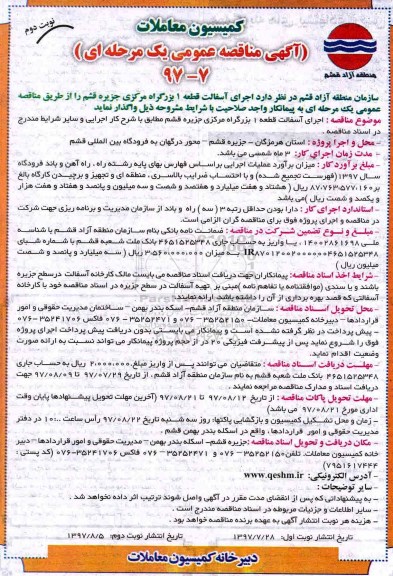 نوبت دوم
کمیسیون معاملات
(آگهی مناقصه عمومی یک مرحله ای)
۹۷ - ۷
منطقه آزاد قشم
سازمان منطقه آزاد قشم در نظر دارد اجرای آسفالت قطعه ۱ بزرگراه مرکزی جزیره قشم را از طریق مناقصه
عمومی یک مرحله ای به پیمانکار واجد صلاحیت با شرایط مشروحه ذیل واگذار نماید.
موضوع مناقصه : اجرای آسفالت قطعه ۱ بزرگراه مرکزی جزیره قشم مطابق با شرح کار اجرایی و سایر شرایط مندرج
در اسناد مناقصه .
- محل و اجرا پروژه : استان هرمزگان – جزیره قشم – محور درگهان به فرودگاه بین المللی قشم
- مدت زمان اجرای کار: ۳ ماه شمسی می باشد.
- مبلغ برآورد کار : میزان برآورد عملیات اجرایی براساس فهارس بهای پایه رشته راه ، راه آهن و باند فرودگاه
سال ۱۳۹۷ (فهرست تجمیع شده) و با احتساب ضرایب بالاسری، منطقه ای و تجهیز و برچیدن کارگاه بالغ
بر ۸۷،۷۶۳،۵۷۷،۱۶۰ ریال (هشتاد و هفت میلیارد و هفتصد و شصت و سه میلیون و پانصد و هفتاد و هفت هزار
و یکصد و شصت ریال) می باشد
- استاندارد اجرای کار : دارا بودن حداقل رتبه ۳ (سه) راه و باند از سازمان مدیریت و برنامه ریزی جهت شرکت
در مناقصه و اجرای پروژه فوق برای مناقصه گران الزامی است.
- مبلغ و نوع تضمین شرکت در مناقصه : ضمانت نامه بانکی بنام سازمان منطقه آزاد قشم با شناسه
ملی ۱۴۰۰۲۸۶۱۶۹۸ ، یا واریز به حساب جاری ۴۶۵۱۵۲۵۳۴۸ بانک ملت شعبه قشم با شماره شبای
میلیون ریال)
- شرایط اخذ اسناد مناقصه: پیمانکاران جهت دریافت اسناد مناقصه می بایست مالک کارخانه آسفالت در سطح جزیره
باشند و یا سندی (موافقتنامه یا تفاهم نامه) مبنی بر تهیه آسفالت در سطح جزیره در اسناد مناقصه خود با کارخانه
آسفالتی که قصد بهره برداری از آن را داشته باشد، ارائه نمایند.
- محل تحویل اسناد مناقصه : سازمان منطقه آزاد قشم– اسکله بندر بهمن – ساختمان مدیریت حقوقی و امور
قراردادها – دبیرخانه کمیسیون معاملات– ۳۵۲۵۲۱۵۰ - ۰۷۶ و ۳۵۲۵۲۴۷۱ - ۰۷۶ فاکس ۳۵۲۴۱۷۰۶-۰۷۶
- پیش پرداخت در نظر گرفته نشده است و پیمانکار می بایستی بدون دریافت پیش پرداخت اجرای پروژه
فوق را شروع نماید پس از پیشرفت فیزیکی ۲۰ در از حجم پروژه پیمانکار می تواند نسبت به ارائه صورت
وضعیت اقدام نماید.
- مهلت دریافت اسناد مناقصه : متقاضیان می توانند پس از واریز مبلغ ۲،۰۰۰،۰۰۰ ریال به حساب جاری
۴۶۵۱۵۲۵۳۴۸ بانک ملت شعبه قشم به نام سازمان منطقه آزاد قشم ، از تاریخ ۹۷/۰۷/۲۹ تا ۹۷/۰۸/۰۹ جهت
دریافت اسناد و مدارک مناقصه مراجعه نمایند .
- مهلت تحویل پاکات مناقصه : از تاریخ ۹۷/۰۸/۱۲ تا ۹۷/۰۸/۲۱ (آخرین مهلت تحویل پیشنهادها پایان وقت
اداری مورخ ۹۷/۰۸/۲۱ می باشد)
- زمان و محل تشکیل کمیسیون و بازگشایی پاکتها: روز سه شنبه تاریخ ۹۷/۰۸/۲۲ رأس ساعت ۱۰:۰۰ در دفتر
مدیریت حقوقی و امور قراردادها، واقع در اسکله بندر بهمن قشم .
- مکان دریافت و تحویل اسناد مناقصه :جزیره قشم– اسکله بندر بهمن – مدیریت حقوقی و امور قراردادها – دبیر
خانه کمیسیون معاملات. تلفن ۳۵۲۵۲۱۵۰ - ۰۷۶ و ۳۵۲۵۲۴۷۱ - ۰۷۶ فاکس ۳۵۲۴۱۷۰۶-۰۷۶ (کد پستی :
۷۹۵۱۶۱۷۴۴۴)
- آدرس الکترونیکی: www.qeshm.ir
- سایر توضیحات :
- به پیشنهاداتی که پس از انقضای مدت مقرر در آگهی واصل شوند ترتیب اثر داده نخواهد شد .
- سایر اطلاعات و جزئیات مربوطه در اسناد مناقصه مندرج است .
- هزینه هر نوبت انتشار آگهی به عهده برنده مناقصه خواهد بود .
تاریخ انتشار نوبت اول: ۱۳۹۷/۷/۲۸ تاریخ انتشار نوبت دوم: ۱۳۹۷/۸/۵
دبیرخانه کمیسیون معاملات